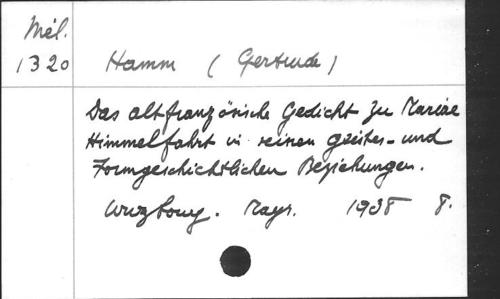 Mél.
1320
Hamm (Gertrude)
Das altfranzösische Gedicht zu Mariae
Himmelfahrt in seinen geistes- und
Formgeschichtlichen Beziehungen.
Wurzbourg. Mayr. 1938 8.